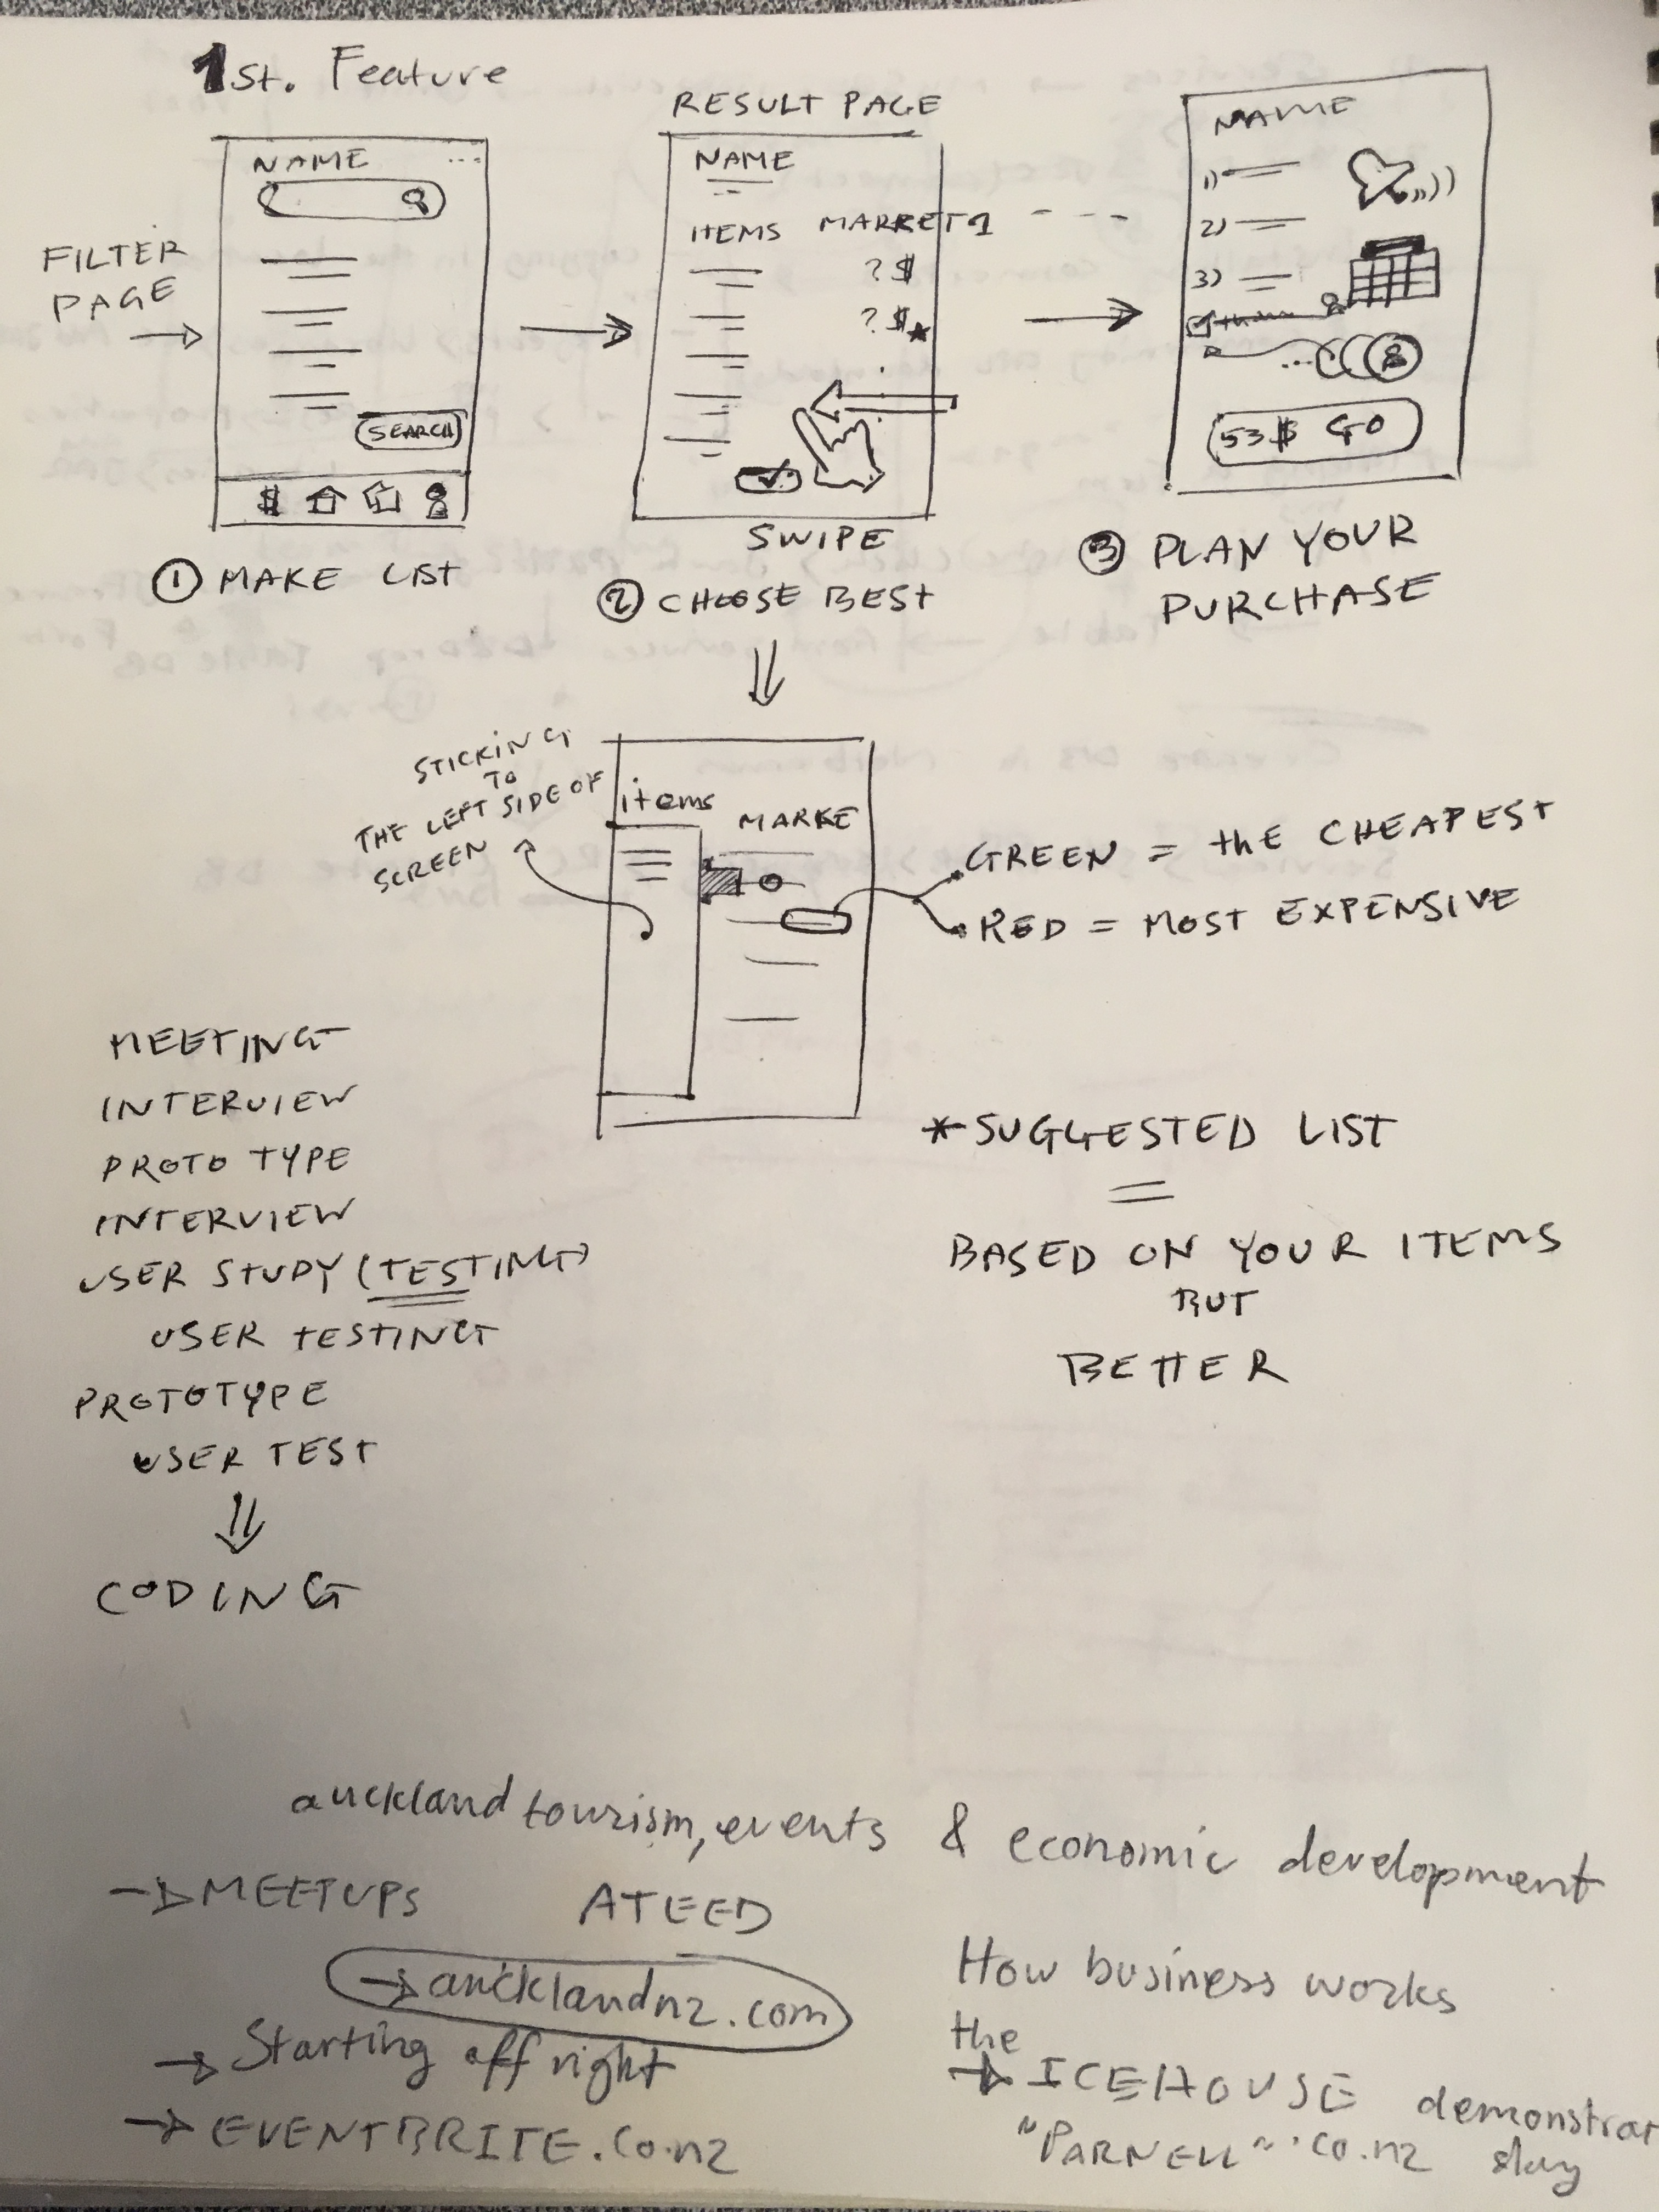 1st. Feature
FILTER
PAGE
NAME ...
SEARCH
$
① MAKE LIST
RESULT PAGE
NAME
ITEMS MARKET 1 - - -
? $
? $
SWIPE
② CHOOSE BEST
NAME
1)
2)
3)
...
53$ GO
③ PLAN YOUR
PURCHASE
STICKING
TO
THE LEFT SIDE OF
SCREEN
items
MARKE
GREEN = the CHEAPEST
RED = MOST EXPENSIVE
MEETING
INTERVIEW
PROTO TYPE
INTERVIEW
USER STUDY (TESTING)
USER TESTING
PROTOTYPE
USER TEST
CODING
* SUGGESTED LIST
=
BASED ON YOUR ITEMS
BUT
BETTER
auckland tourism, events & economic development
→ MEETUPS ATEED
→ aucklandnz.com
→ Starting off right
→ EVENTBRITE.co.nz
How business works
the
→ ICEHOUSE demonstrat
"PARNELL".co.nz day